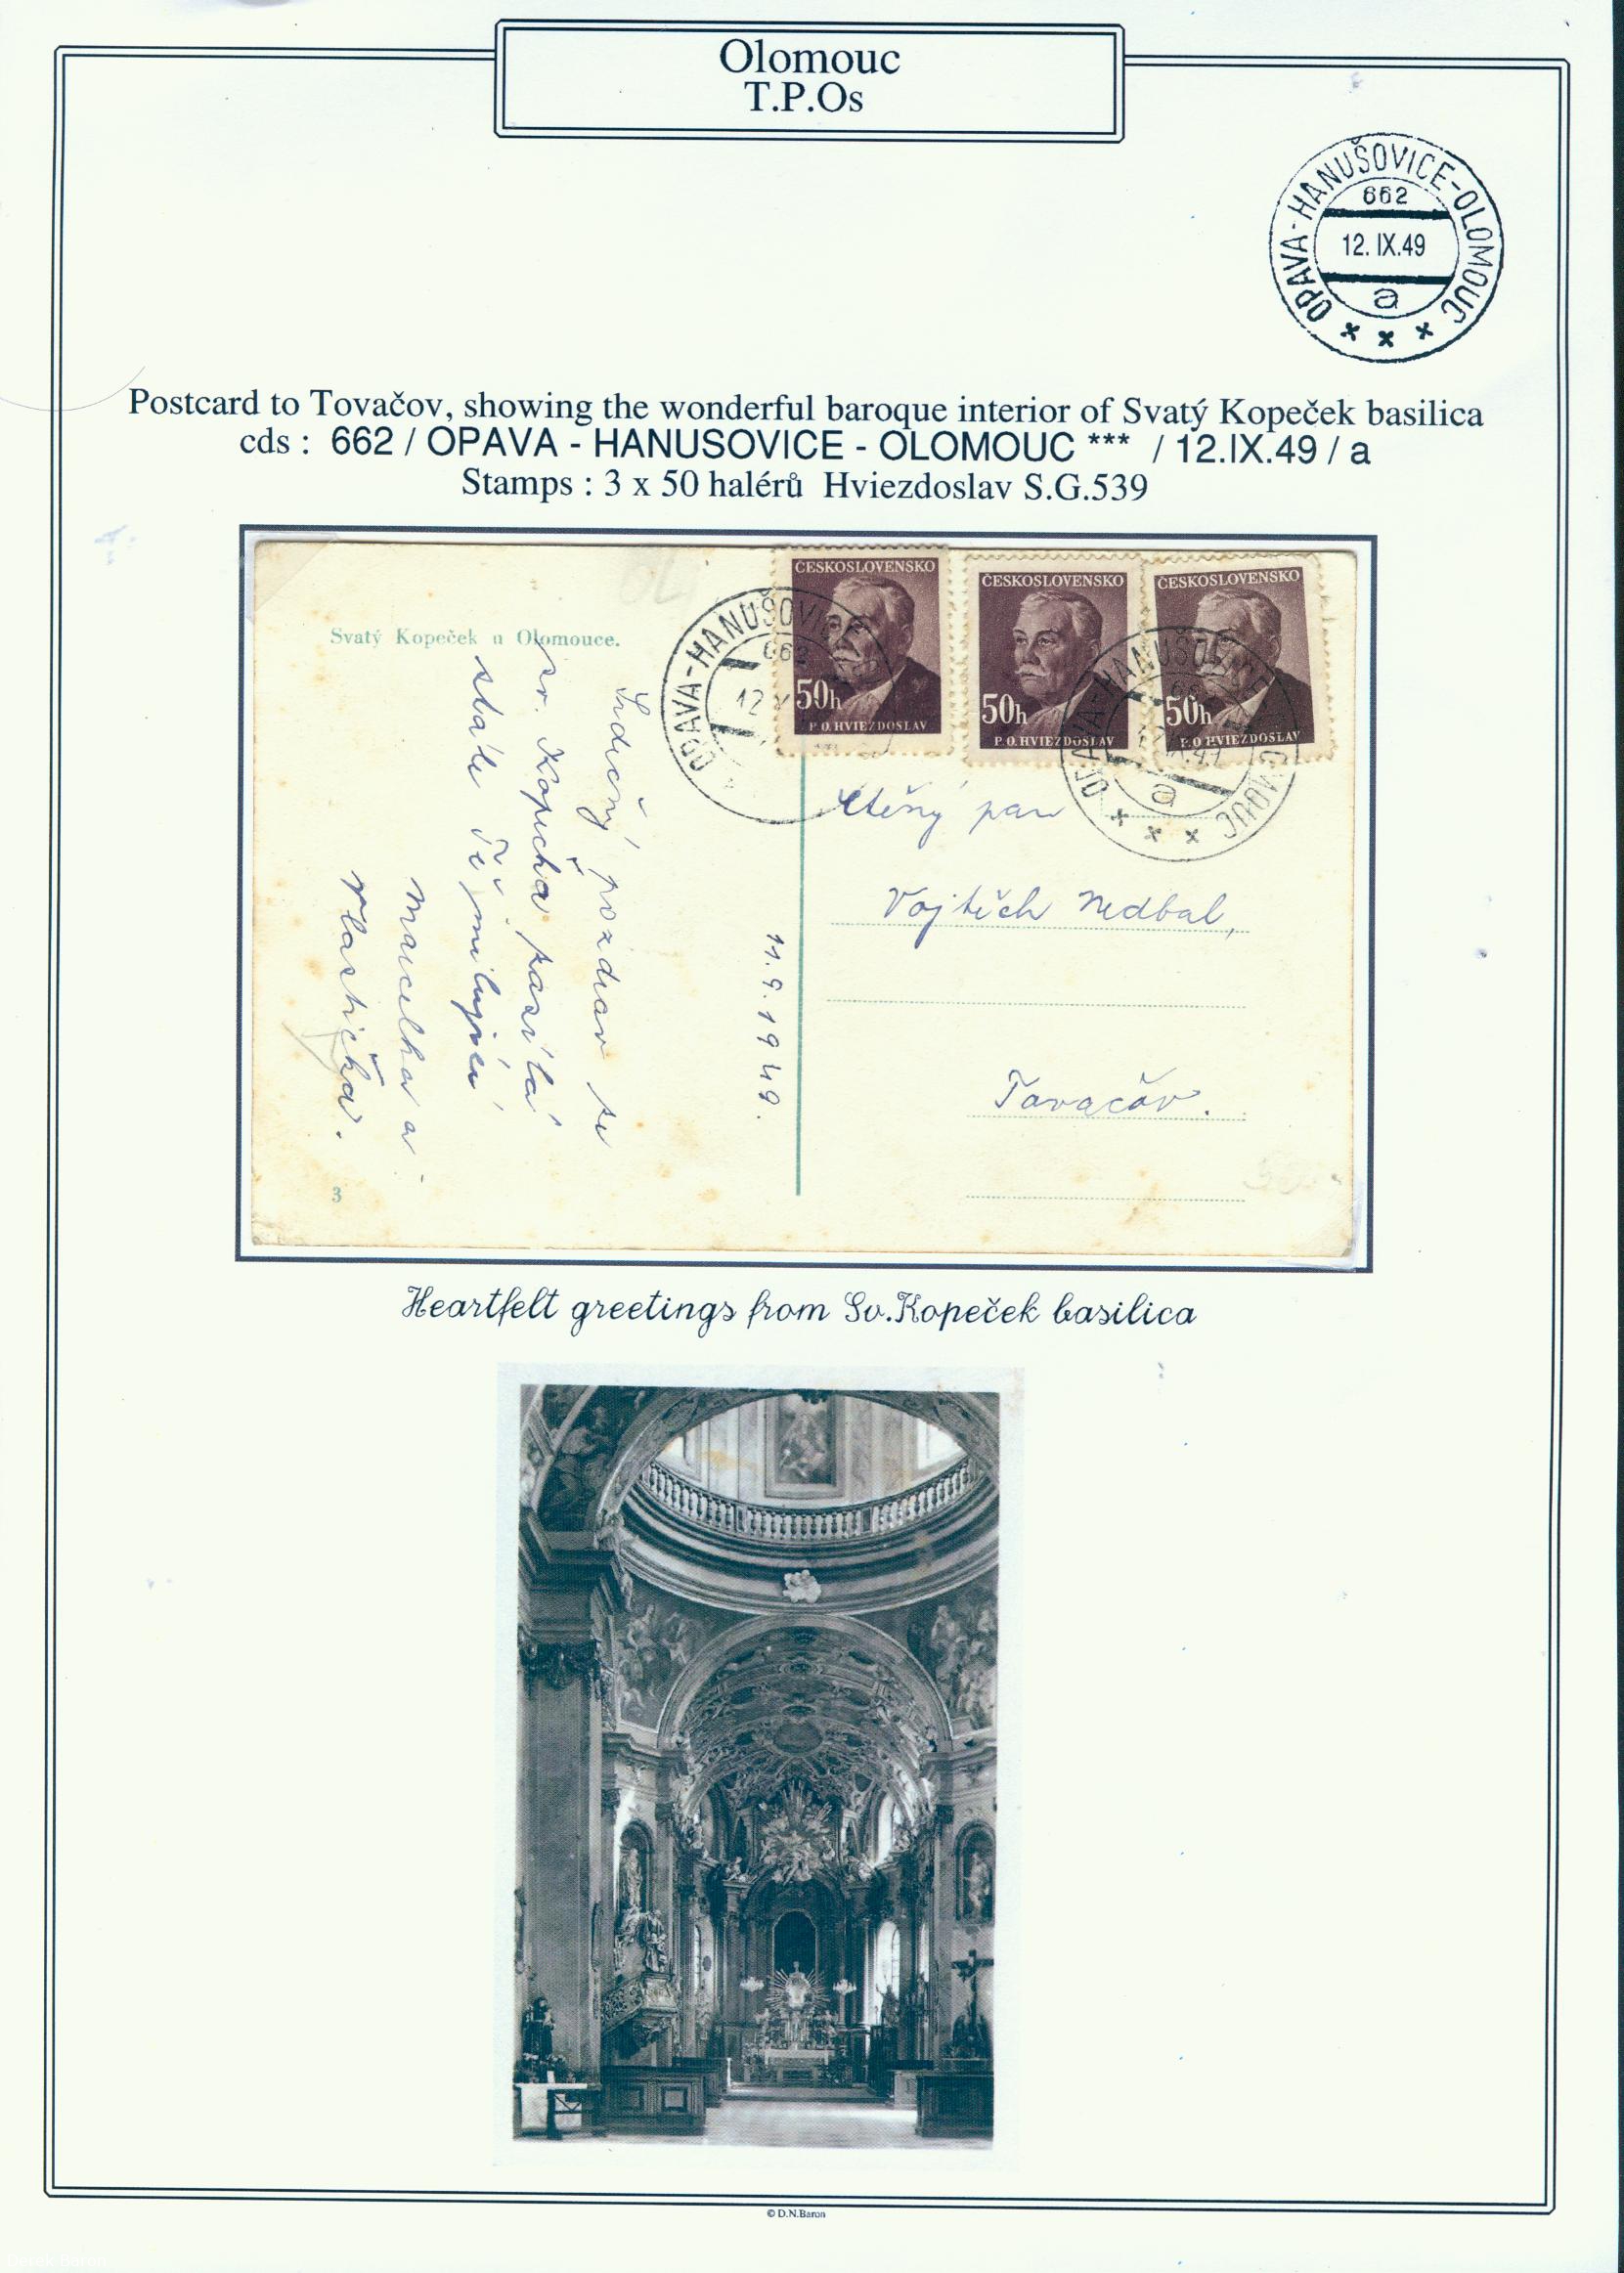 Olomouc
T.P.Os
OPAVA-HANUŠOVICE-OLOMOUC
662
12. IX.49
a
Postcard to Tovačov, showing the wonderful baroque interior of Svatý Kopeček basilica
cds : 662 / OPAVA - HANUSOVICE - OLOMOUC *** / 12.IX.49 / a
Stamps : 3 x 50 halérů Hviezdoslav S.G.539
Svatý Kopeček u Olomouce.
OPAVA-HANUŠOVICE
662
12
ČESKOSLOVENSKO
50h
P.O.HVIEZDOSLAV
ČESKOSLOVENSKO
50h
P.O.HVIEZDOSLAV
ČESKOSLOVENSKO
50h
P.O.HVIEZDOSLAV
OPAVA-HANUŠOVICE-OLOMOUC
a
Srdečný pozdrav ze
sv. Kopečka posílá
stále Tě milující
Marcelka a
Vlastička.
11.9.1949.
Ctěný pan
Vojtěch Nedbal,
Tovačov.
3
Heartfelt greetings from Sv.Kopeček basilica
© D.N.Baron
Derek Baron